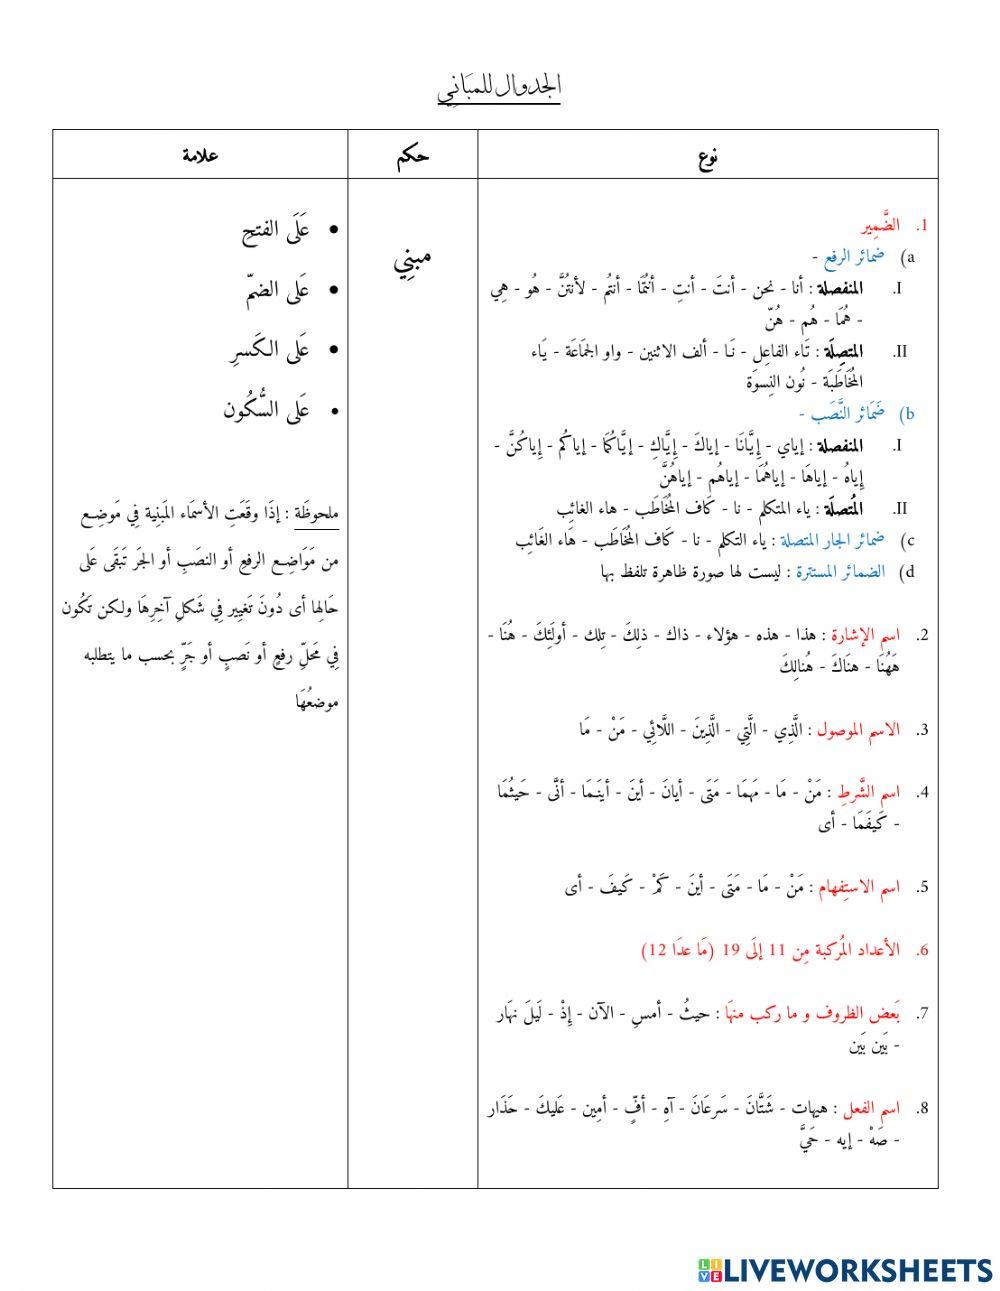 الجدوال للمبَانِي
نوع
حكم
علامة
1. الضَّمِير
a) ضمائر الرفع -
I. المنفصلة : أنا - نحن - أنتَ - أنتِ - أنتُمَا - أنتُم - لأنتُنَّ - هُو - هِي
- هُمَا - هُم - هُنّ
II. المتصِلَة : تَاء الفاعِل - نَـا - ألف الاثنين - واو الجمَاعَة - يَاء
المُخَاطَبَة - نُون النِسوَة
b) ضَمَائر النَّصَب -
I. المنفصلة : إياي - إيَّانَا - إياكَ - إيَّاكِ - إيَّاكُمَا - إياكُم - إياكُنَّ -
إياهُ - إياهَا - إياهُمَا - إياهُم - إياهُنَّ
II. المُتصلَة : ياء المتكلم - نا - كَاف المُخَاطَب - هاء الغائِب
c) ضمائر الجار المتصلة : ياء التكلم - نا - كَاف المُخَاطَب - هَاء الغَائِب
d) الضمائر المستترة : ليست لها صورة ظاهرة تلفظ بها
2. اسم الإشارة : هذا - هذه - هؤلاء - ذاك - ذلِكَ - تِلك - أولَئِكَ - هُنَا -
هَهُنَا - هنَاكَ - هُنالِكَ
3. الاسم الموصول : الَّذِي - الَّتِي - الَّذِينَ - اللَّائِي - مَنْ - مَا
4. اسم الشَّرطِ : مَنْ - مَا - مَهمَا - مَتَى - أيانَ - أينَ - أينَـمَا - أنَّى - حَيثُمَا
- كَيفَمَا - أى
5. اسم الاستِفهام : مَنْ - مَا - مَتَى - أينَ - كَمْ - كَيفَ - أى
6. الأعداد المُركبة مِن 11 إلَى 19 (مَا عدَا 12)
7. بَعض الظروف و ما ركب منهَا : حيثُ - أمسِ - الآن - إذْ - لَيلَ نهَار
- بَين بَين
8. اسم الفعل : هيهات - شَتَّانَ - سَرعَانَ - آهِ - أفٍّ - أمِين - عَليكَ - حَذَار
- صَهْ - إيه - حَيَّ
مبنِي
• عَلَى الفتحِ
• عَلى الضمّ
• عَلى الكَسرِ
• عَلى السُّكُون
ملحوظَة : إذَا وقَعَتِ الأسمَاء المَبنِية فِي مَوضِـع
من مَوَاضِـع الرفعِ أو النصَبِ أو الجَر تَبقَى عَلى
حَالِها أى دُونَ تَغيِير فِي شَكلِ آخِرِهَا ولكن تَكُون
فِي مَحلّ رفعٍ أو نَصبٍ أو جَرٍّ بحسب ما يتطلبه
موضعُهَا
LIVE LIVEWORKSHEETS